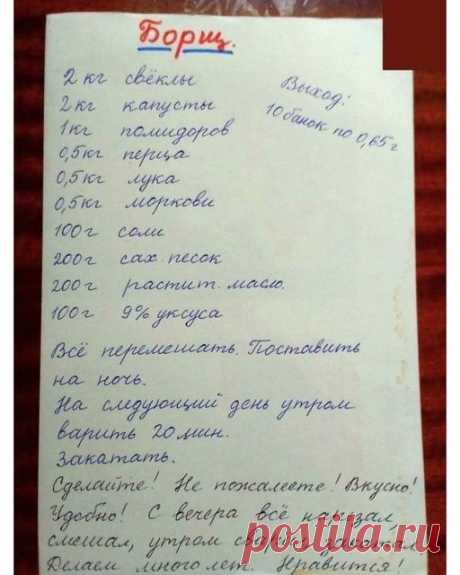 Борщ.
2 кг свёклы
2 кг капусты
1 кг помидоров
0,5кг перца
0,5кг лука
0,5кг моркови
100 г соли
200 г сах. песок
200 г растит. масло.
100 г 9% уксуса
Выход:
10 банок по 0,65 г
Всё перемешать. Поставить
на ночь.
На следующий день утром
варить 20 мин.
Закатать.
Сделайте! Не пожалеете! Вкусно!
Удобно! С вечера всё
смешал, утром
Делаем много лет. Нравится!
postila.ru